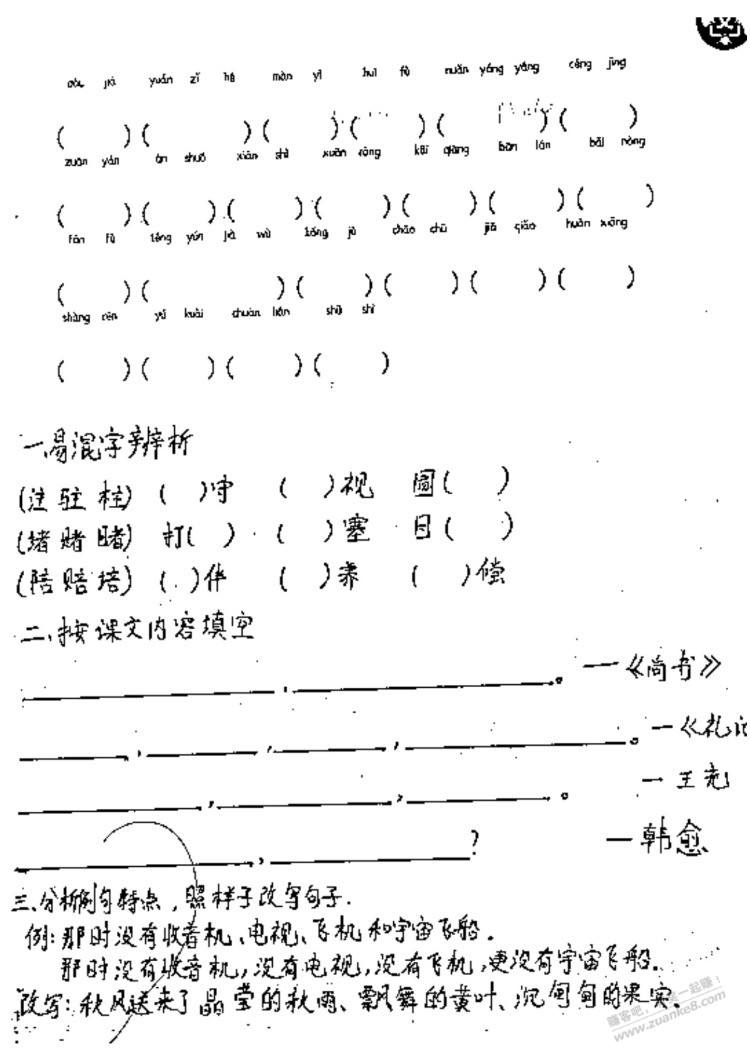 jià yuán zǐ hé màn yì huī fù nuǎn yáng yáng céng jīng
( )( )( )( )( )( )
zuān yán án shuō xiǎn shì xuān róng kāi qiāng bān lán bǎi nòng
( )( )( )( )( )( )( )
fǎn fù téng yún jià wù kǒng jù chāo chū jiā qiǎo huàn xiǎng
( )( )( )( )( )( )
shāng rén yú kuài chuàn lián shū shì
( )( )( )( )
一、易混字辨析
(注 驻 柱) ( )守 ( )视 圆( )
(堵 赌 睹) 打( ) ( )塞 目( )
(陪 赔 培) ( )伴 ( )养 ( )偿
二、按课文内容填空
，。—《尚书》
，，，。—《礼记
，，。—王充
，？—韩愈
三、分析例句特点，照样子改写句子.
例:那时没有收音机、电视、飞机和宇宙飞船。
那时没有收音机，没有电视，没有飞机，更没有宇宙飞船。
改写:秋风送来了晶莹的秋雨、飘舞的黄叶、沉甸甸的果实。
www.zuanke8.com